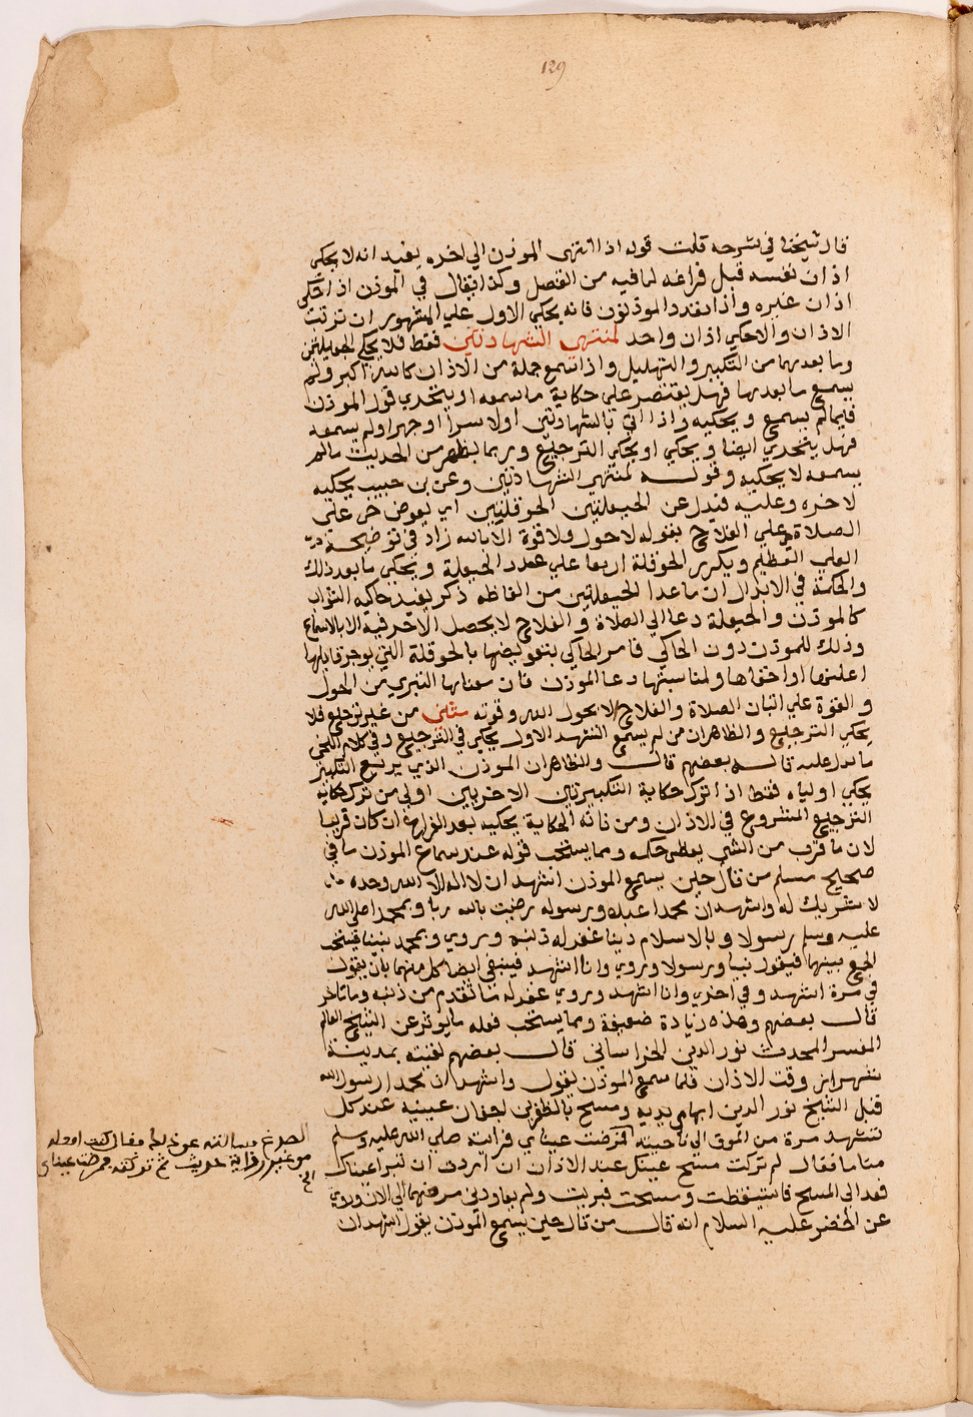 129
قال شيخنا في شرحه قلت قوله اذا انتهى الموذن الي اخره يفيد انه لا يحكي
اذان نفسه قبل فراغه لما فيه من الفصل وكذا يقال في الموذن اذا حكى
اذان غيره واذا تعدد الموذنون فانه يحكي الاول علي المشهور ان ترتبت
الاذان والا حكي اذان واحد لمنتهى الشهادتين فقط فلا يحكي الحيعلتين
وما بعدهما من التكبير والتهليل واذا سمع جملة من الاذان كالله اكبر ولم
يسمع ما بعدها فهل يقتصر علي حكاية ما سمعه او يتحدي قول الموذن
فيما لم يسمع ويحكيه واذا اتي بالشهادتين اولا سرا او جهرا ولم يسمعه
فهل يتحدي ايضا ويحكي او يحكي الترجيع وربما يظهر من الحديث ما لم
يسمعه لا يحكيه وقوله لمنتهى الشهادتين وعن بن حبيب يحكيه
لاخره وعليه فيدل عن الحيعلتين الحوقلتين اي يعوض حي علي
الصلاة حي علي الفلاح بقوله لا حول ولا قوة الا بالله زاد في توضيحه
العلي العظيم ويكرر الحوقلة اربعا علي عدد الحيعلة ويحكي ما بعد ذلك
والحكمة في الابدال ان ما عدا الحيعلتين من الفاظه ذكر يفيد حاكيه الثواب
كالموذن والحيعلة دعا الي الصلاة و الفلاح لا يحصل الاجر فيه الا بالاسماع
وذلك للموذن دون الحاكي فامر الحاكي بتعويضها بالحوقلة التي يوجر قايلها
اعلنها او اخفاها ولمناسبتها دعا الموذن فان معناها التبري من الحول
و القوة علي اتيان الصلاة والفلاح الا بحول الله وقوته مثنى من غير ترجيع فلا
يحكي الترجيع والظاهر ان من لم يسمع التشهد الاول يحكي في الترجيع وفي كلام اللخمي
ما يدل عليه قاله بعضهم قال والظاهر ان الموذن الذي يربع التكبير
يحكي اولياه فقط اذا ترك حكاية التكبيرتين الاخريين اولى من ترك حكاية
الترجيع المشروع في الاذان ومن فاته الحكاية يحكيه بعد الفراغ ان كان قريبا
لان ما قرب من الشي يعطى حكمه ومما يستحب قوله عند سماع الموذن ما في
صحيح مسلم من قال حين يسمع الموذن اشهد ان لا اله الا الله وحده
لا شريك له واشهد ان محمدا عبده ورسوله رضيت بالله ربا وبمحمد صلي الله
عليه وسلم رسولا وبالاسلام دينا غفر له ذنبه وروي وبمحمد نبينا فيستحب
الجمع بينهما فيقول نبيا ورسولا وروي وانا اشهد فينبغي ايضا كل منهما بان يقول
في مرة اشهد وفي اخري وانا اشهد وروي غفر له ما تقدم من ذنبه وما تاخر
قال بعضهم وهذه زيادة ضعيفة ومما يستحب فعله ما يوثر عن الشيخ العالم
المفسر المحدث نور الدين الخراساني قال بعضهم لقيته بمدينة
شيراز وقت الاذان فلما سمع الموذن يقول واشهد ان محمدا رسول الله
قبل الشيخ نور الدين ابهامي يديه ومسح بالظفرين اجفان عينيه عند كل
تشهد مرة من الموق الي ناحية الصدغ فسالته عن ذلك فقال كنت افعله
من غير رواية حديث ثم تركته فمرضت عيناي الخ
فمرضت عيناي فرايته صلي الله عليه وسلم
مناما فقال لم تركت مسح عينيك عند الاذان ان اردت ان تبرا عيناك
فعد الي المسح فاستيقظت ومسحت فبريت ولم يعاودني مرضهما الي الان وروي
عن الخضر عليه السلام انه قال من قال حين يسمع الموذن يقول اشهد ان